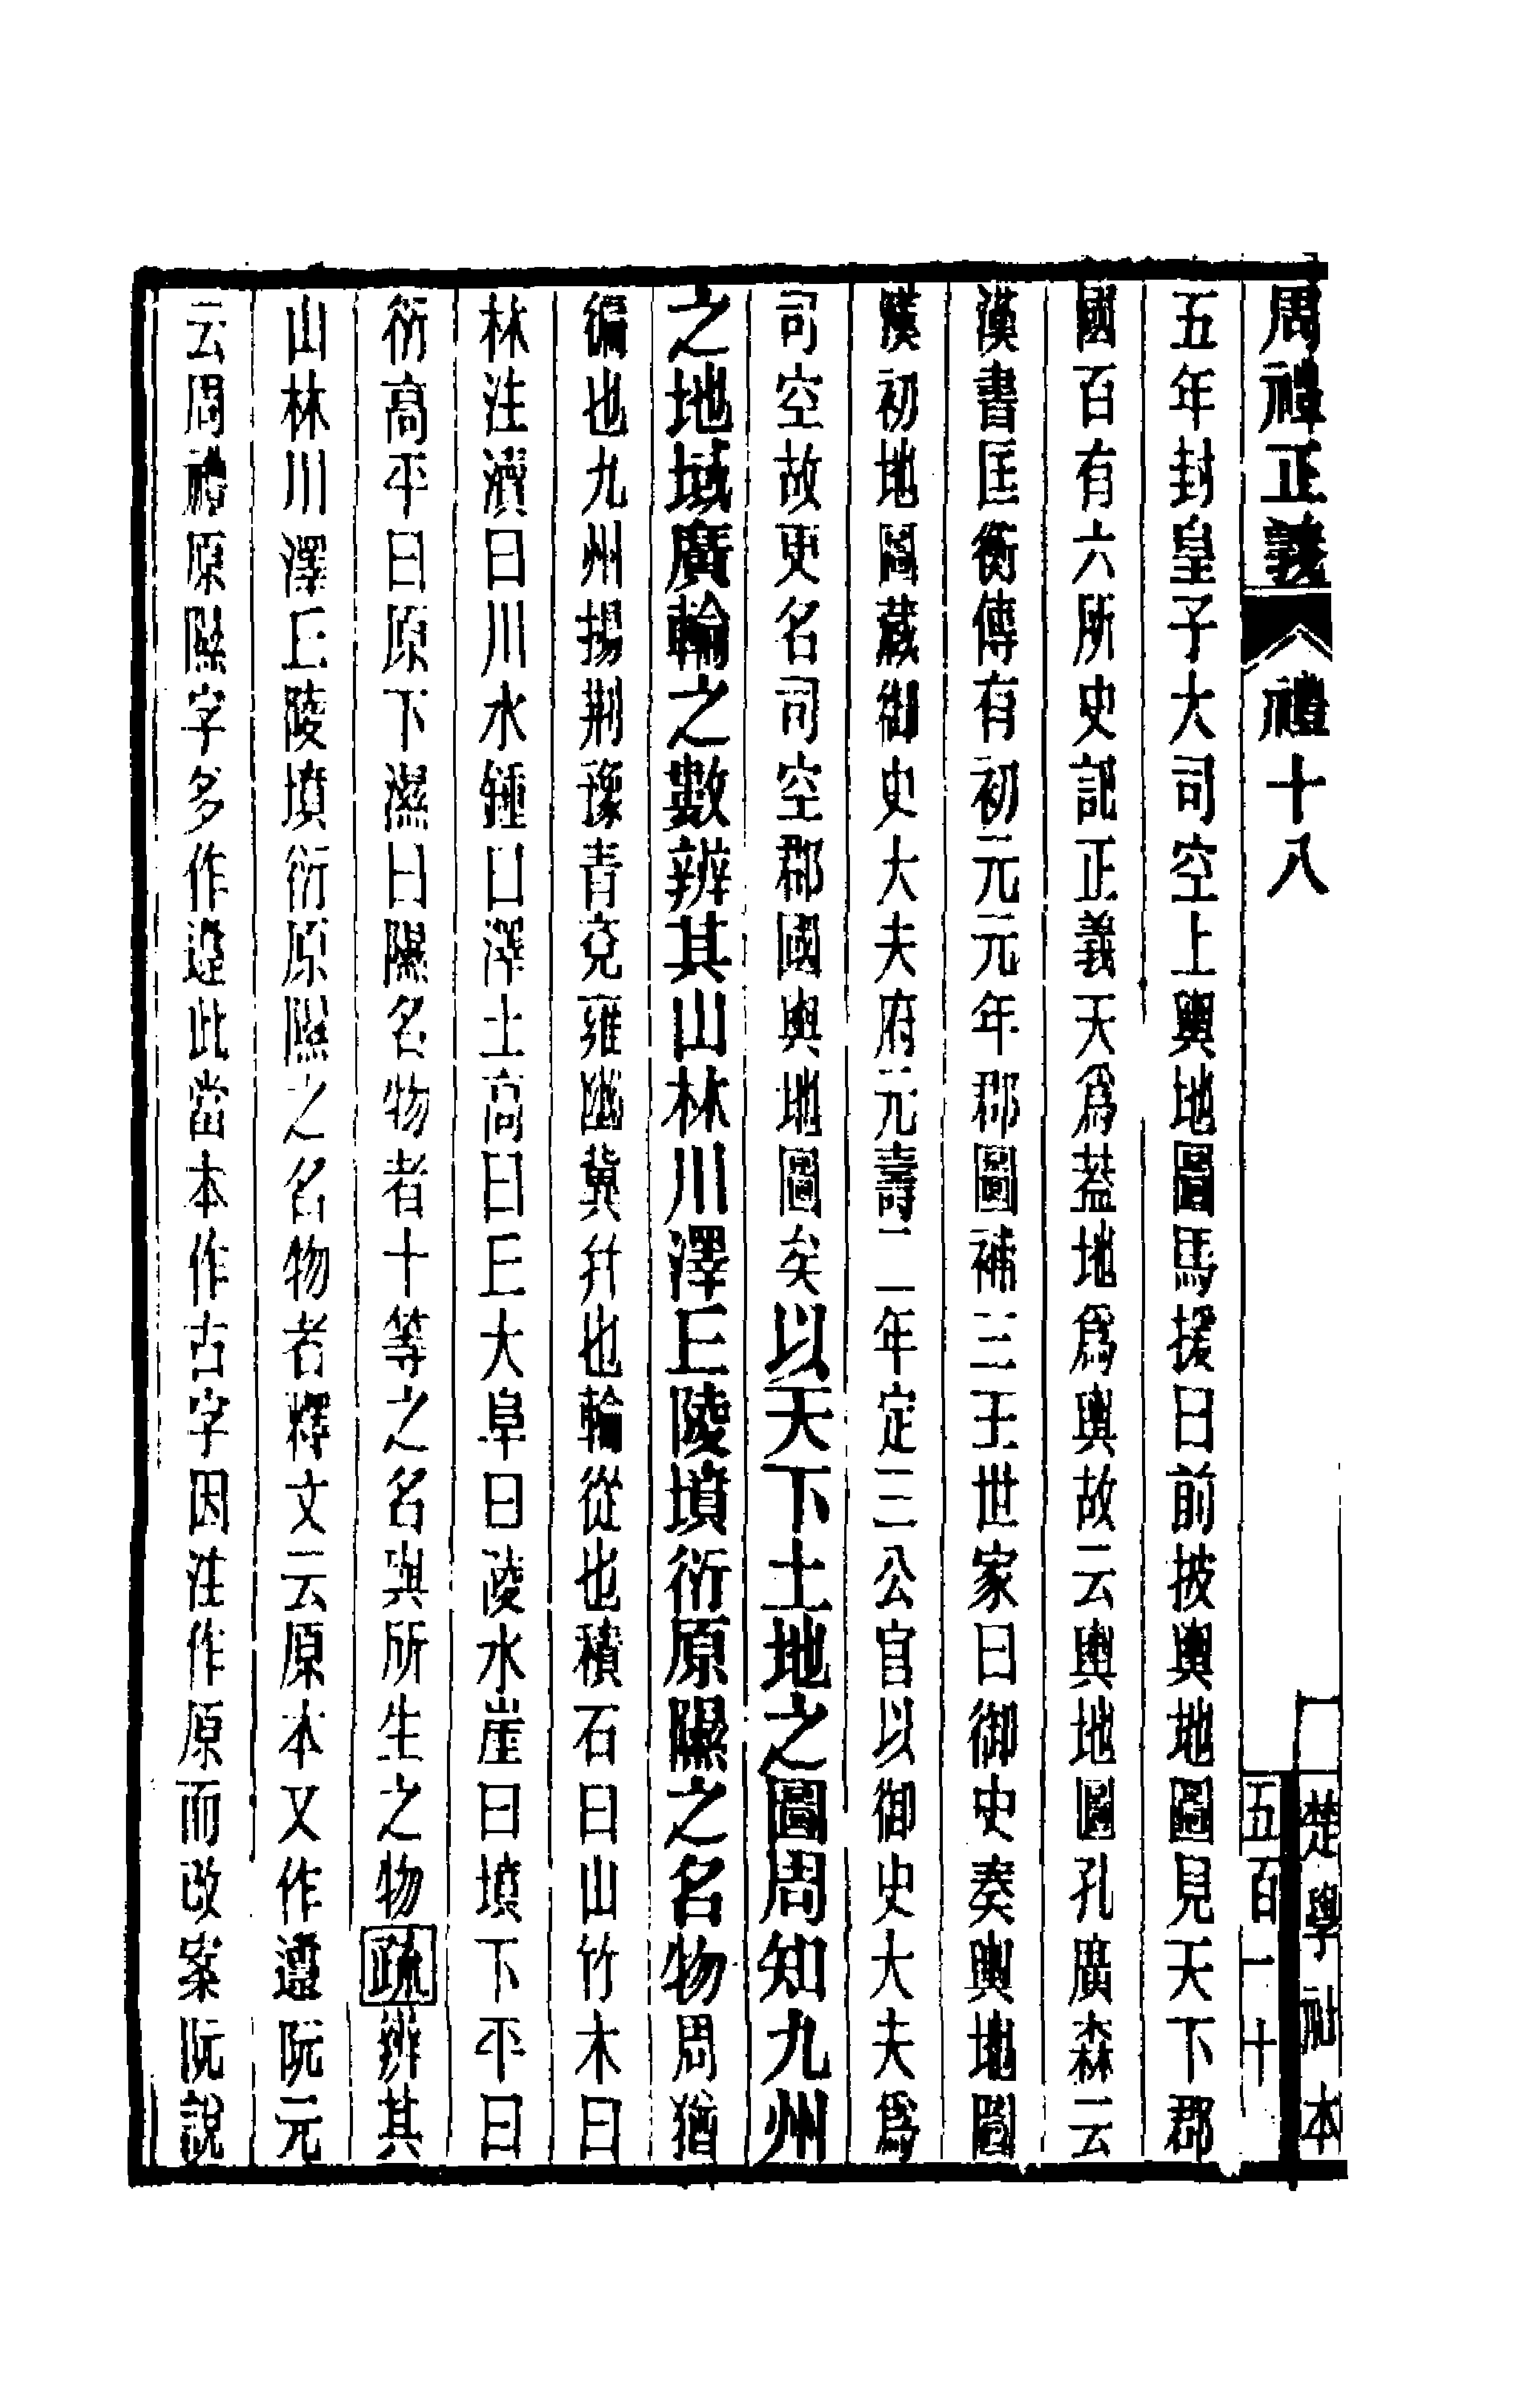 周禮正義 禮十八
五百一十
楚學社本
五年封皇子大司空上輿地圖馬援曰前披輿地圖見天下郡
國百有六所史記正義天爲葢地爲輿故云輿地圖孔廣森云
漢書匡衡傳有初元元年郡圖補三王世家曰御史奏輿地圖
漢初地圖藏御史大夫府元壽二年定三公官以御史大夫爲
司空故更名司空郡國輿地圖矣以天下土地之圖周知九州
之地域廣輪之數辨其山林川澤丘陵墳衍原隰之名物周猶
徧也九州揚荆豫青兗雍幽冀并也輪從也積石曰山竹木曰
林注瀆曰川水鍾曰澤土高曰丘大阜曰陵水崖曰墳下平曰
衍高平曰原下濕曰隰名物者十等之名與所生之物疏辨其
山林川澤丘陵墳衍原隰之名物者釋文云原本又作邍阮元
云周禮原隰字多作邍此當本作古字因注作原而改案阮說